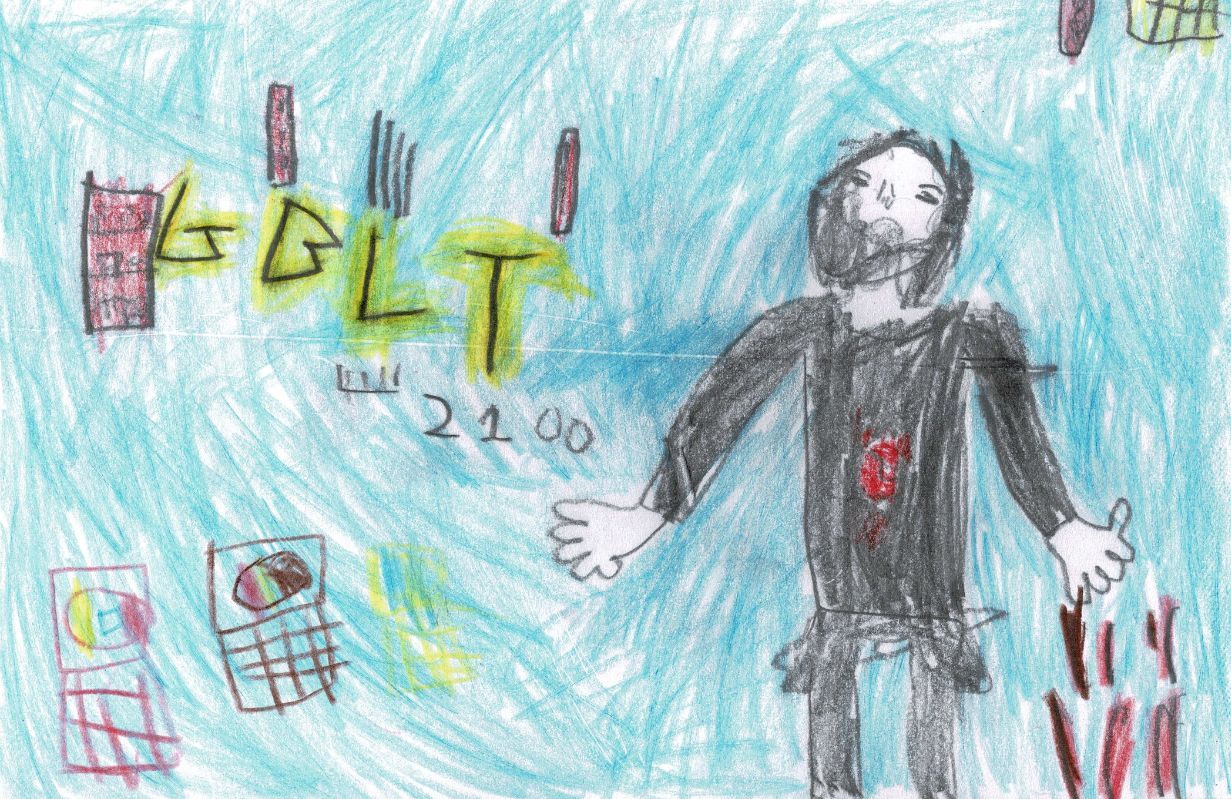 GBLT
2100